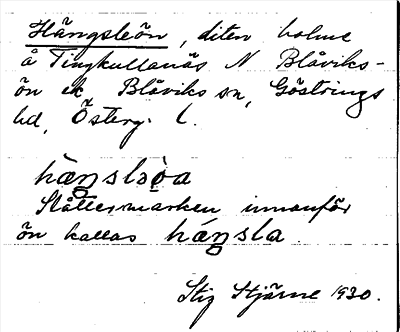 Hängsleön, liten holme
å Tingkullanäs N Blåviks-
ön ek, Blåviks sn, Göstrings
hd, Österg. l.
hæŋsləòa
Slåttesmarken innanför
ön kallas hæŋsla.
Stig Stjärne 1930.